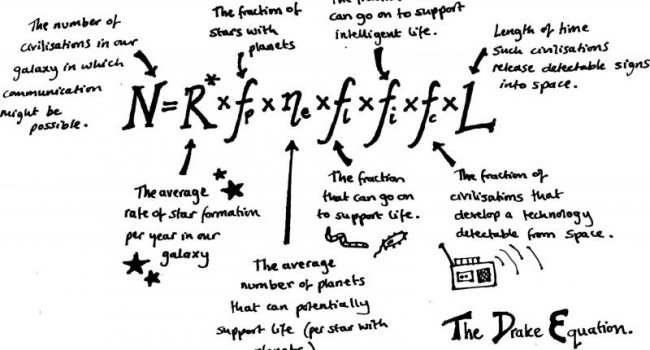 The number of
civilisations in our
galaxy in which
communication
might be
possible.
The fraction of
stars with
planets
can go on to support
intelligent life.
Length of time
such civilisations
release detectable signs
into space.
N = R* × fp × ηe × fl × fi × fc × L
The average
rate of star formation
per year in our
galaxy
The average
number of planets
that can potentially
support life (per star with
The fraction
that can go on
to support life.
The fraction of
civilisations that
develop a technology
detectable from space.
The Drake Equation.